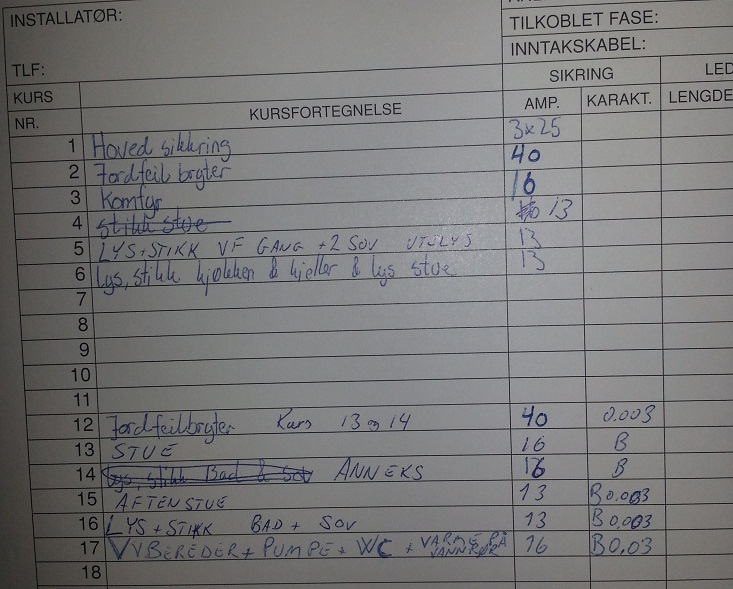 INSTALLATØR:
TILKOBLET FASE:
INNTAKSKABEL:
TLF:
SIKRING LED
KURS NR. KURSFORTEGNELSE AMP. KARAKT. LENGDE
1 Hoved sikkring 3x25
2 Jordfeil bryter 40
3 Komfyr 16
4 stikk stue 13
5 LYS+STIKK VF GANG +2 SOV UTELYS 13
6 Lys, stikk kjøkken & kjeller & lys stue 13
7
8
9
10
11
12 Jordfeilbryter Kurs 13 og 14 40 0.003
13 STUE 16 B
14 Lys, stikk Bad & Sov ANNEKS 16 B
15 AFTENSTUE 13 B 0,003
16 LYS + STIKK BAD + SOV 13 B 0,003
17 VVBEREDER + PUMPE + WC + VARME PÅ VANNRØR 16 B 0,03
18